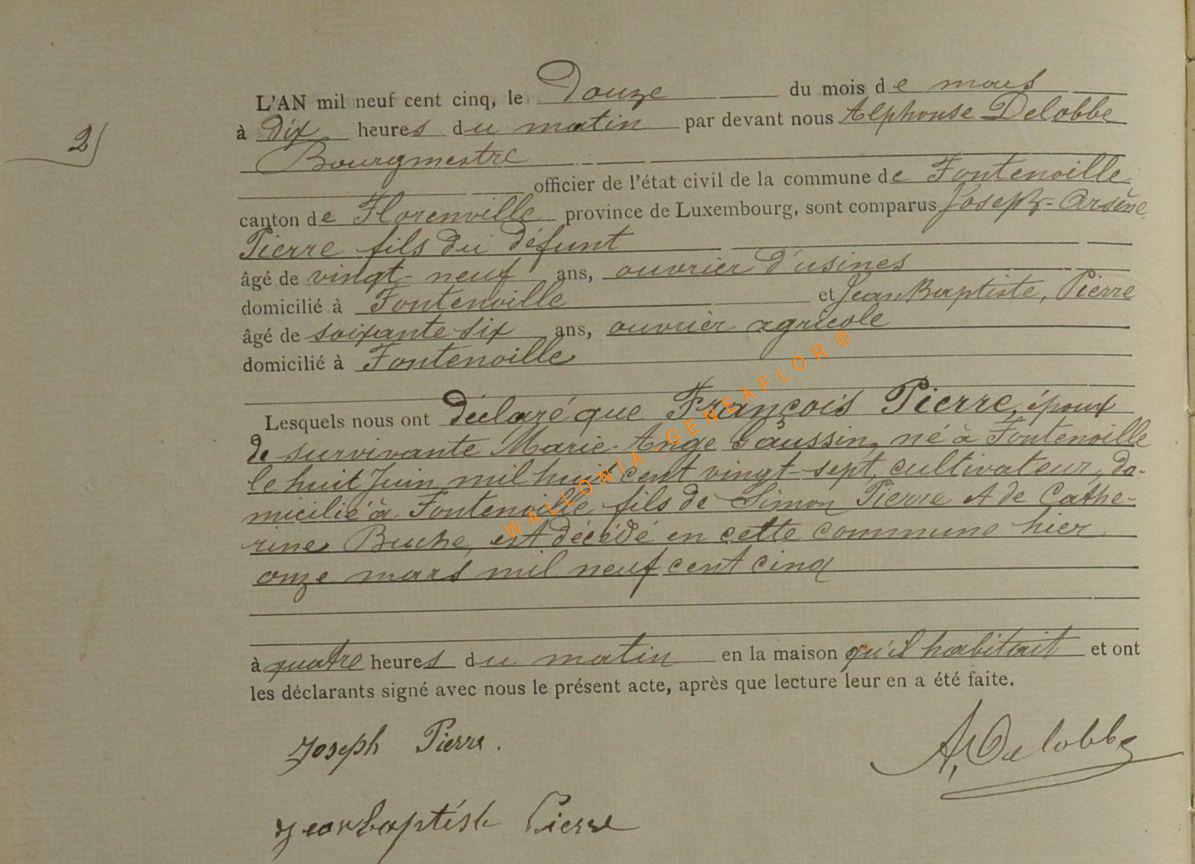 L'AN mil neuf cent cinq, le Douze du mois de mars
2/
à Dix heures du matin par devant nous Alphonse Delobbe
Bourgmestre
officier de l'état civil de la commune de Fontenoille
canton de Florenville province de Luxembourg, sont comparus Joseph-Arsène,
Pierre fils du défunt
âgé de vingt-neuf ans, ouvrier d'usines
domicilié à Fontenoille et Jean Baptiste, Pierre
âgé de soixante six ans, ouvrier agricole
domicilié à Fontenoille
Lesquels nous ont déclaré que François Pierre, époux
de survivante Marie-Ange Saussin, né à Fontenoille
le huit Juin mil huit cent vingt-sept, cultivateur, do-
micilié à Fontenoille fils de Simon Pierre & de Cathe-
rine Buche, est décédé en cette commune hier
onze mars mil neuf cent cinq
à quatre heures du matin en la maison qu'il habitait et ont
les déclarants signé avec nous le présent acte, après que lecture leur en a été faite.
Joseph Pierre.
A, Delobbe
Jean baptiste Pierre
WALLONIA GENEAFLOR ©